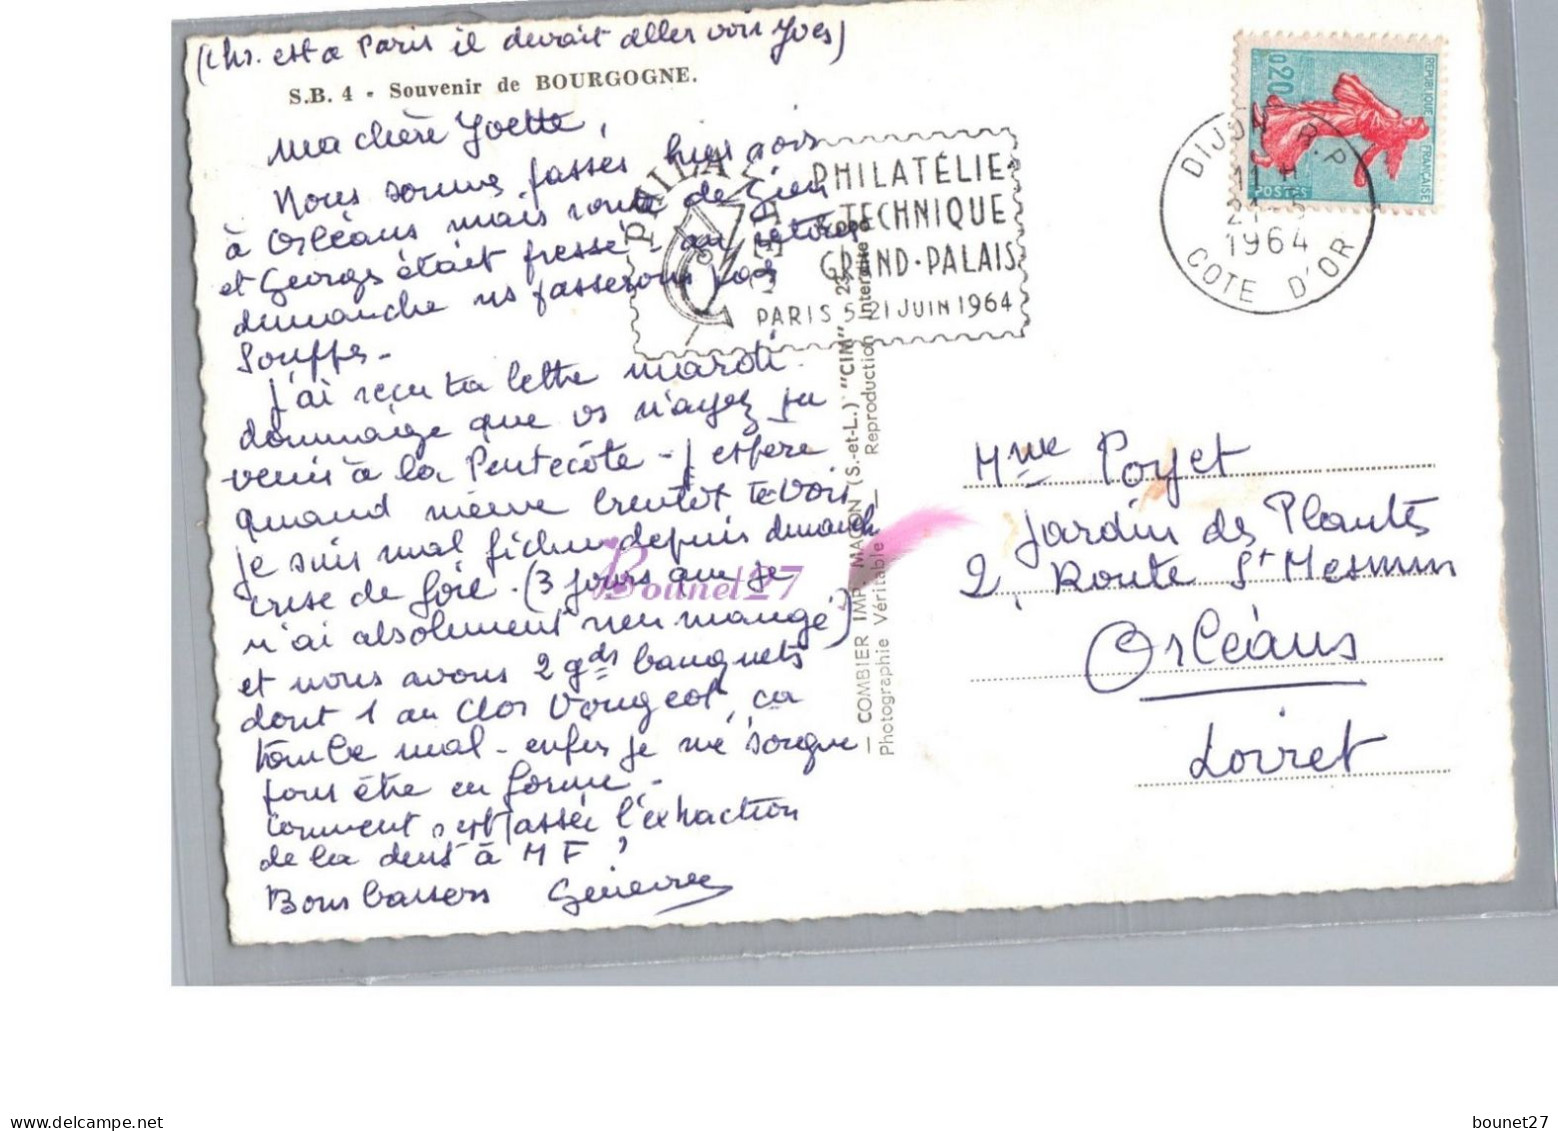 (Chr. est a Paris il devait aller voir Yves)
S.B. 4 - Souvenir de BOURGOGNE.
Ma chère Yvette,
Nous sommes passés hier soir
à Orléans mais route de Gien
et Georges était pressé - au retour
dimanche ns passerons par
Souppes -
J'ai reçu ta lettre mardi.
dommage que vs n'ayez pu
venir à la Pentecôte - J'espère
quand même bientôt te voir
je suis mal fichue depuis dimanch
crise de foie - (3 jours que je
n'ai absolument rien mangé)
et nous avons 2 gds banquets
dont 1 au Clos Vougeot, ca
tombe mal - enfin je me soigne
pour être en forme -
Comment s'est passée l'extraction
de la dent à M F ?
Bons baisers Geneviève
PHILATEC
PHILATÉLIE
& TECHNIQUE
GRAND-PALAIS
PARIS 5-21 JUIN 1964
— COMBIER IMP. MACON (S.-et-L.) "CIM"
Photographie Véritable — Reproduction Interdite
REPUBLIQUE FRANÇAISE
0,20
POSTES
DIJON R.P.
1964
COTE D'OR
Mme Poyet
Jardin des Plantes
2, Route St Mesmin
Orléans
Loiret
Bounet27
bounet27